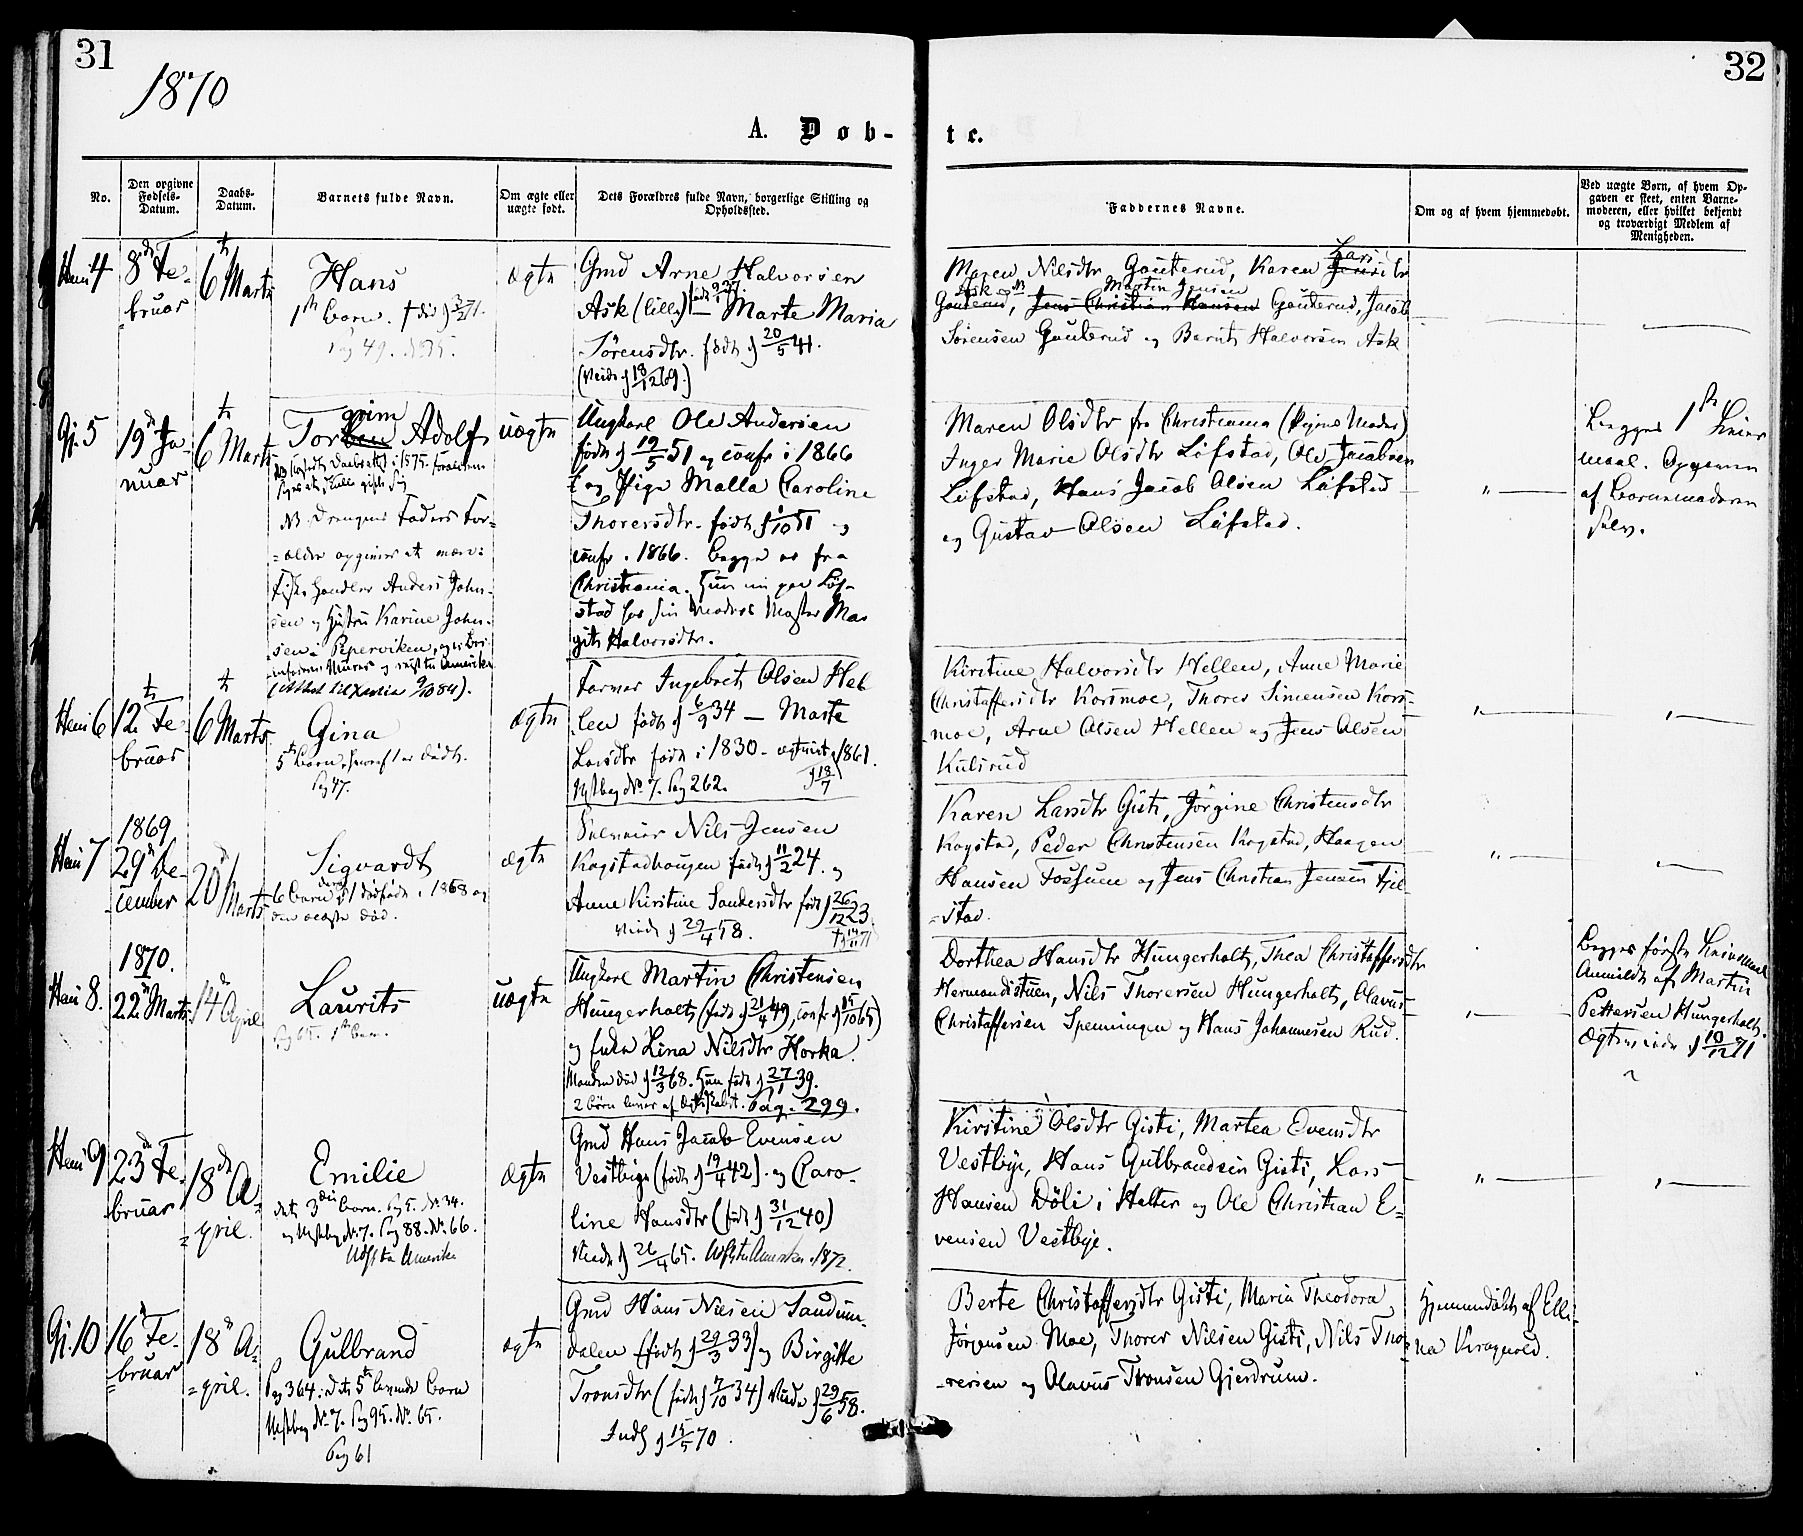 31
32
1870
A. Døb-
te.
No.
Den opgivne
Fødsels-
Datum.
Daabs-
Datum.
Barnets fulde Navn.
Om ægte eller
uægte født.
Dets Forældres fulde Navn, borgerlige Stilling og
Opholdssted.
Faddernes Navne.
Om og af hvem hjemmedøbt.
Ved uægte Børn, af hvem Op-
gaven er skeet, enten Barne-
moderen, eller hvilket bekjendt
og troværdigt Medlem af
Menigheden.
4
8de Fe-
bruar
6te Marts
Hans
1ste Barn. † død 3/2 71.
Pag 49.
ægte
Gmd Arne Halvorsen
Ask (lille) — Marte Maria
Sørensdtr. født 20/5 41.
(Viede 18/12 69.)
Maren Nilsdtr Gauterud, Karen Lars Jensdtr
Ask Martin Jensen
Gauterud, Jens Christian Hansen Gauterud, Jacob
Sørensen Gauterud og Bernt Halvorsen Ask
Gj. 5
19de Ja-
nuar
6te Marts
grim
Torben Adolf
NB Drengens Faders For-
ældre opgives at være:
Handler Anders John-
sen og Hustru Karine John-
sen i Pipervigen,
uægte
Ungkarl Ole Andersen
født 19/5 51 og confr i 1866
og Pige Malla Caroline
Thorersdtr. født 1/10 51 og
confr. 1866. Begge er fra
Christiania. Hun nu paa Løf-
stad hos sin Moders Moster Mar
git Halvorsdtr.
Maren Olsdtr fra Christiania (Pigens Moder)
Inger Marie Olsdtr Løfstad, Ole Jacobsen
Løfstad, Hans Jacob Olsen Løfstad
og Gustav Olsen Løfstad.
"
Begges 1ste Leier
maal. Opgiven
af Barnemoderen
selv.
6
12te Fe-
bruar
6te Marts
Gina
5te Barn, hvoraf 1 er dødt.
Pag 47.
ægte
Farmer Ingebret Olsen Hel
len født 6/9 34 — Marte
Larsdtr født i 1830 - ægteviet 1861.
13/7
No 7. Pag 262.
Kirstine Halvorsdtr Hellen, Anne Marie
Christoffersdtr Korsmoe, Thorer Simensen Kors-
moe, Arne Olsen Hellen og Jens Olsen
Kulsrud
"
"
7
1869
29de De-
cember
20de Marts
Sigvardt
6 Barn deraf 1 dødfødt i 1868 og
ægte
Nils Jensen
Kogstadhaugen født 11/2 24. og
Anne Kirstine Sandersdtr født 26/12 23
Viede 29/4 58.
Karen Larsdtr Gisti, Jørgine Christensdtr
Kogstad, Peder Christensen Kogstad, Haagen
Hansen Fossum og Jens Christian Jensen Fjel-
stad.
"
8.
1870.
22de Marts
14de April
Laurits
Pag 65. 1ste Barn.
uægte
Ungkarl Martin Christensen
Hungerholt (født 21/4 49, confr 15/10 65)
og Enke Lina Nilsdtr Horka.
Manden død 12/3 68. Hun født 27/1 39.
2 Børn Pag. 299.
Dorthea Hansdtr Hungerholt, Thea Christoffersdtr
Hermandstuen, Nils Thorersen Hungerholt, Olavus
Christoffersen Spenningen og Hans Johannesen Rud.
"
Begges første Leiermaal
Anmeldt af Martin
Pettersen Hungerholt.
Ægteviede 10/12 71
9
23de Fe-
bruar
18de A-
pril.
Emilie
dets 3die Barn. Pag 5. No 34.
og No 7. Pag 88. No 66.
Udfl. til Amerika
ægte
Gmd Hans Jacob Evensen
Vestbye (født 19/4 42) og Caro-
line Hansdtr (født 31/12 40)
Viede 26/4 65. Udfl. til Amerika 1872.
Kirstine Olsdtr Gisti, Martea Evensdtr
Vestbye, Hans Gulbrandsen Gisti, Lars
Hansen Døli i Holter og Ole Christian E-
vensen Vestbye.
"
"
Gj. 10
16de Fe-
bruar
18de A-
pril.
Gulbrand
Pag 364: dets 5te levende Barn
No 7. Pag 95. No 65.
Pag 61
ægte
Gmd Hans Nilsen Sandum-
dalen (født 29/3 33) og Birgitte
Tronsdtr (født 7/10 34) Viede 29/6 58.
Inds 15/5 70.
Berte Christoffersdtr Gisti, Maria Theodora
Jørgensen Moe, Thorer Nilsen Gisti, Nils Tho-
rersen og Olavus Tronsen Gjerdrum.
Hjemmedøbt af Elli-
na Kragvold.